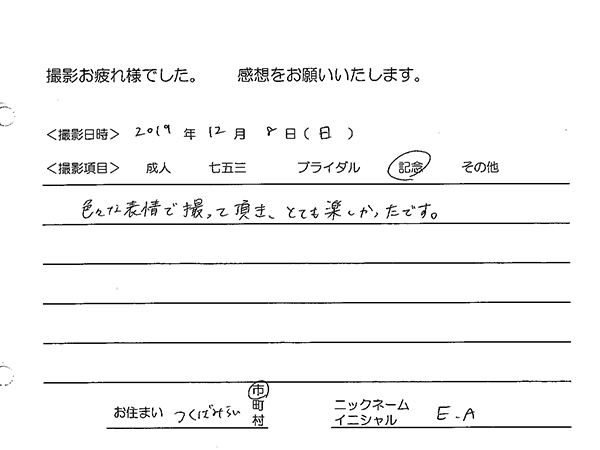 撮影お疲れ様でした。 感想をお願いいたします。
＜撮影日時＞ 2019 年 12 月 8 日(日)
＜撮影項目＞ 成人 七五三 ブライダル 記念 その他
色々な表情で撮って頂き、とても楽しかったです。
お住まい つくばみらい 市町村
ニックネーム イニシャル E.A